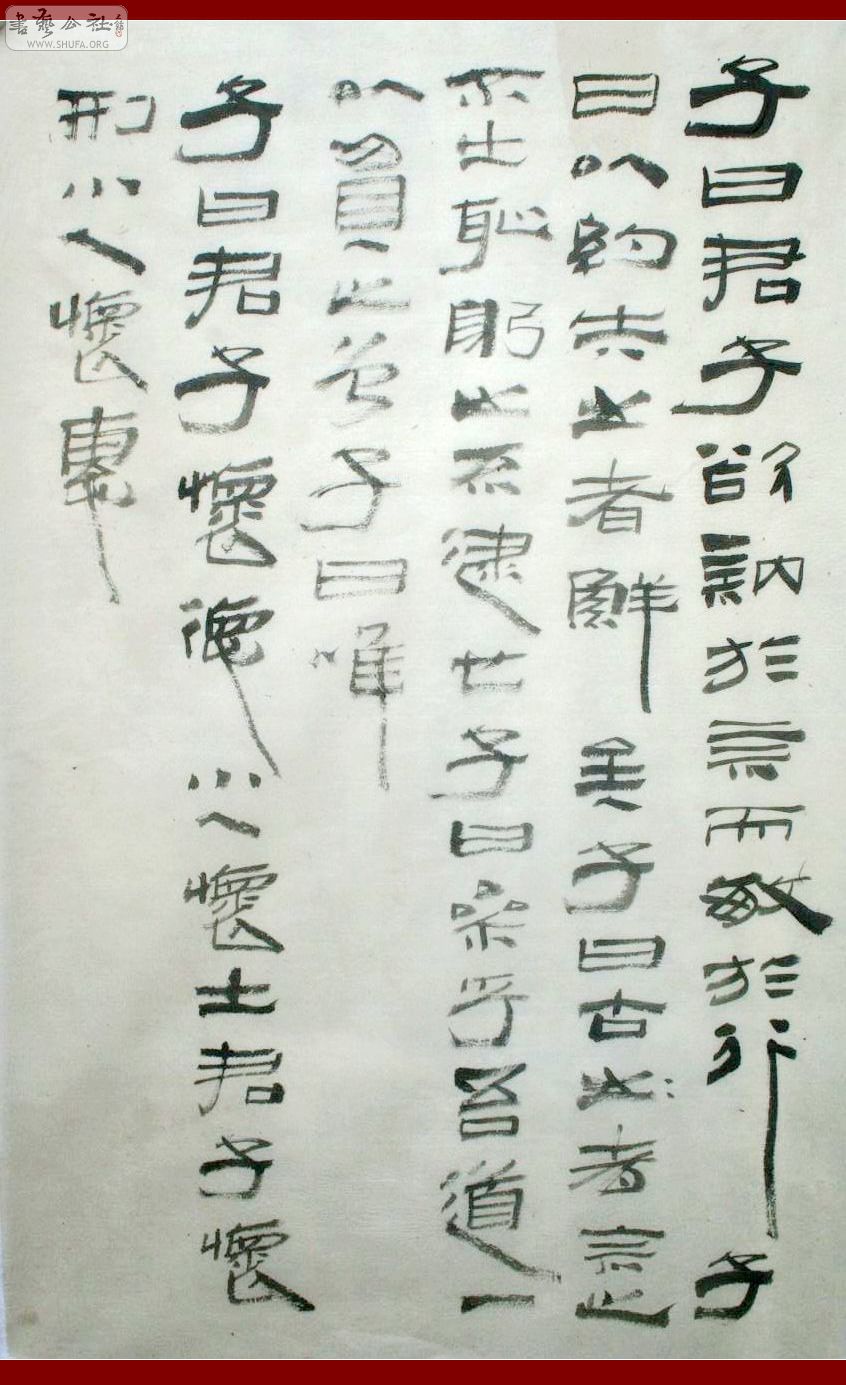 書藝公社
WWW.SHUFA.ORG
子曰君子欲訥於言而敏於行子
曰以約失之者鮮矣子曰古之者言之
不出恥躬之不逮也子曰參乎吾道一
以貫之曾子曰唯
子曰君子懷德小人懷土君子懷
刑小人懷惠